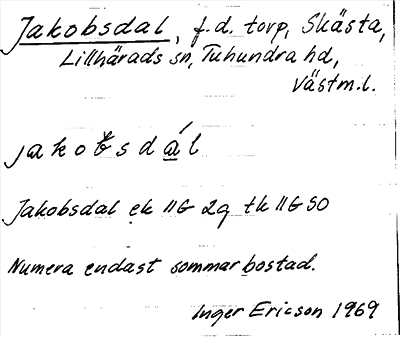 Jakobsdal, f.d. torp, Skästa,
Lillhärads sn, Tuhundra hd,
Västm.l.
jakobsdál
Jakobsdal ek 11G 2g tk 11G SO
Numera endast sommarbostad.
Inger Ericson 1969